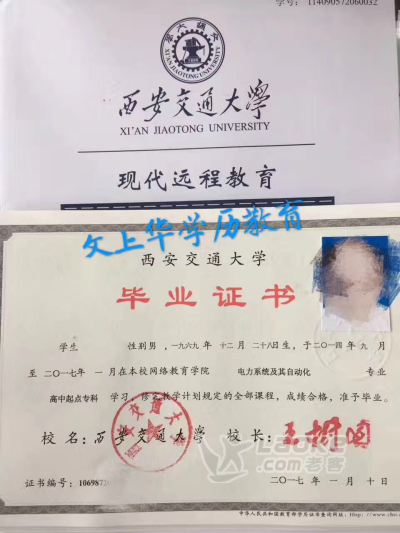 学号: 114090572060032
西安交通大学
XI'AN JIAOTONG UNIVERSITY
西安交通大学
XI'AN JIAOTONG UNIVERSITY
现代远程教育
文上华学历教育
西安交通大学
毕业证书
学生 性别男,一九六九年 十二月 二十八日生,于二〇一四年 九月
至 二〇一七年 一月在本校网络教育学院 电力系统及其自动化 专业
高中起点专科 学习,修完教学计划规定的全部课程,成绩合格,准予毕业。
校 名:西安交通大学 校 长:
西安交通大学
LAOKE.COM老客
证书编号: 1069872 二〇一七年 一月 十日
中华人民共和国教育部学历证书查询网址:http://www.chs